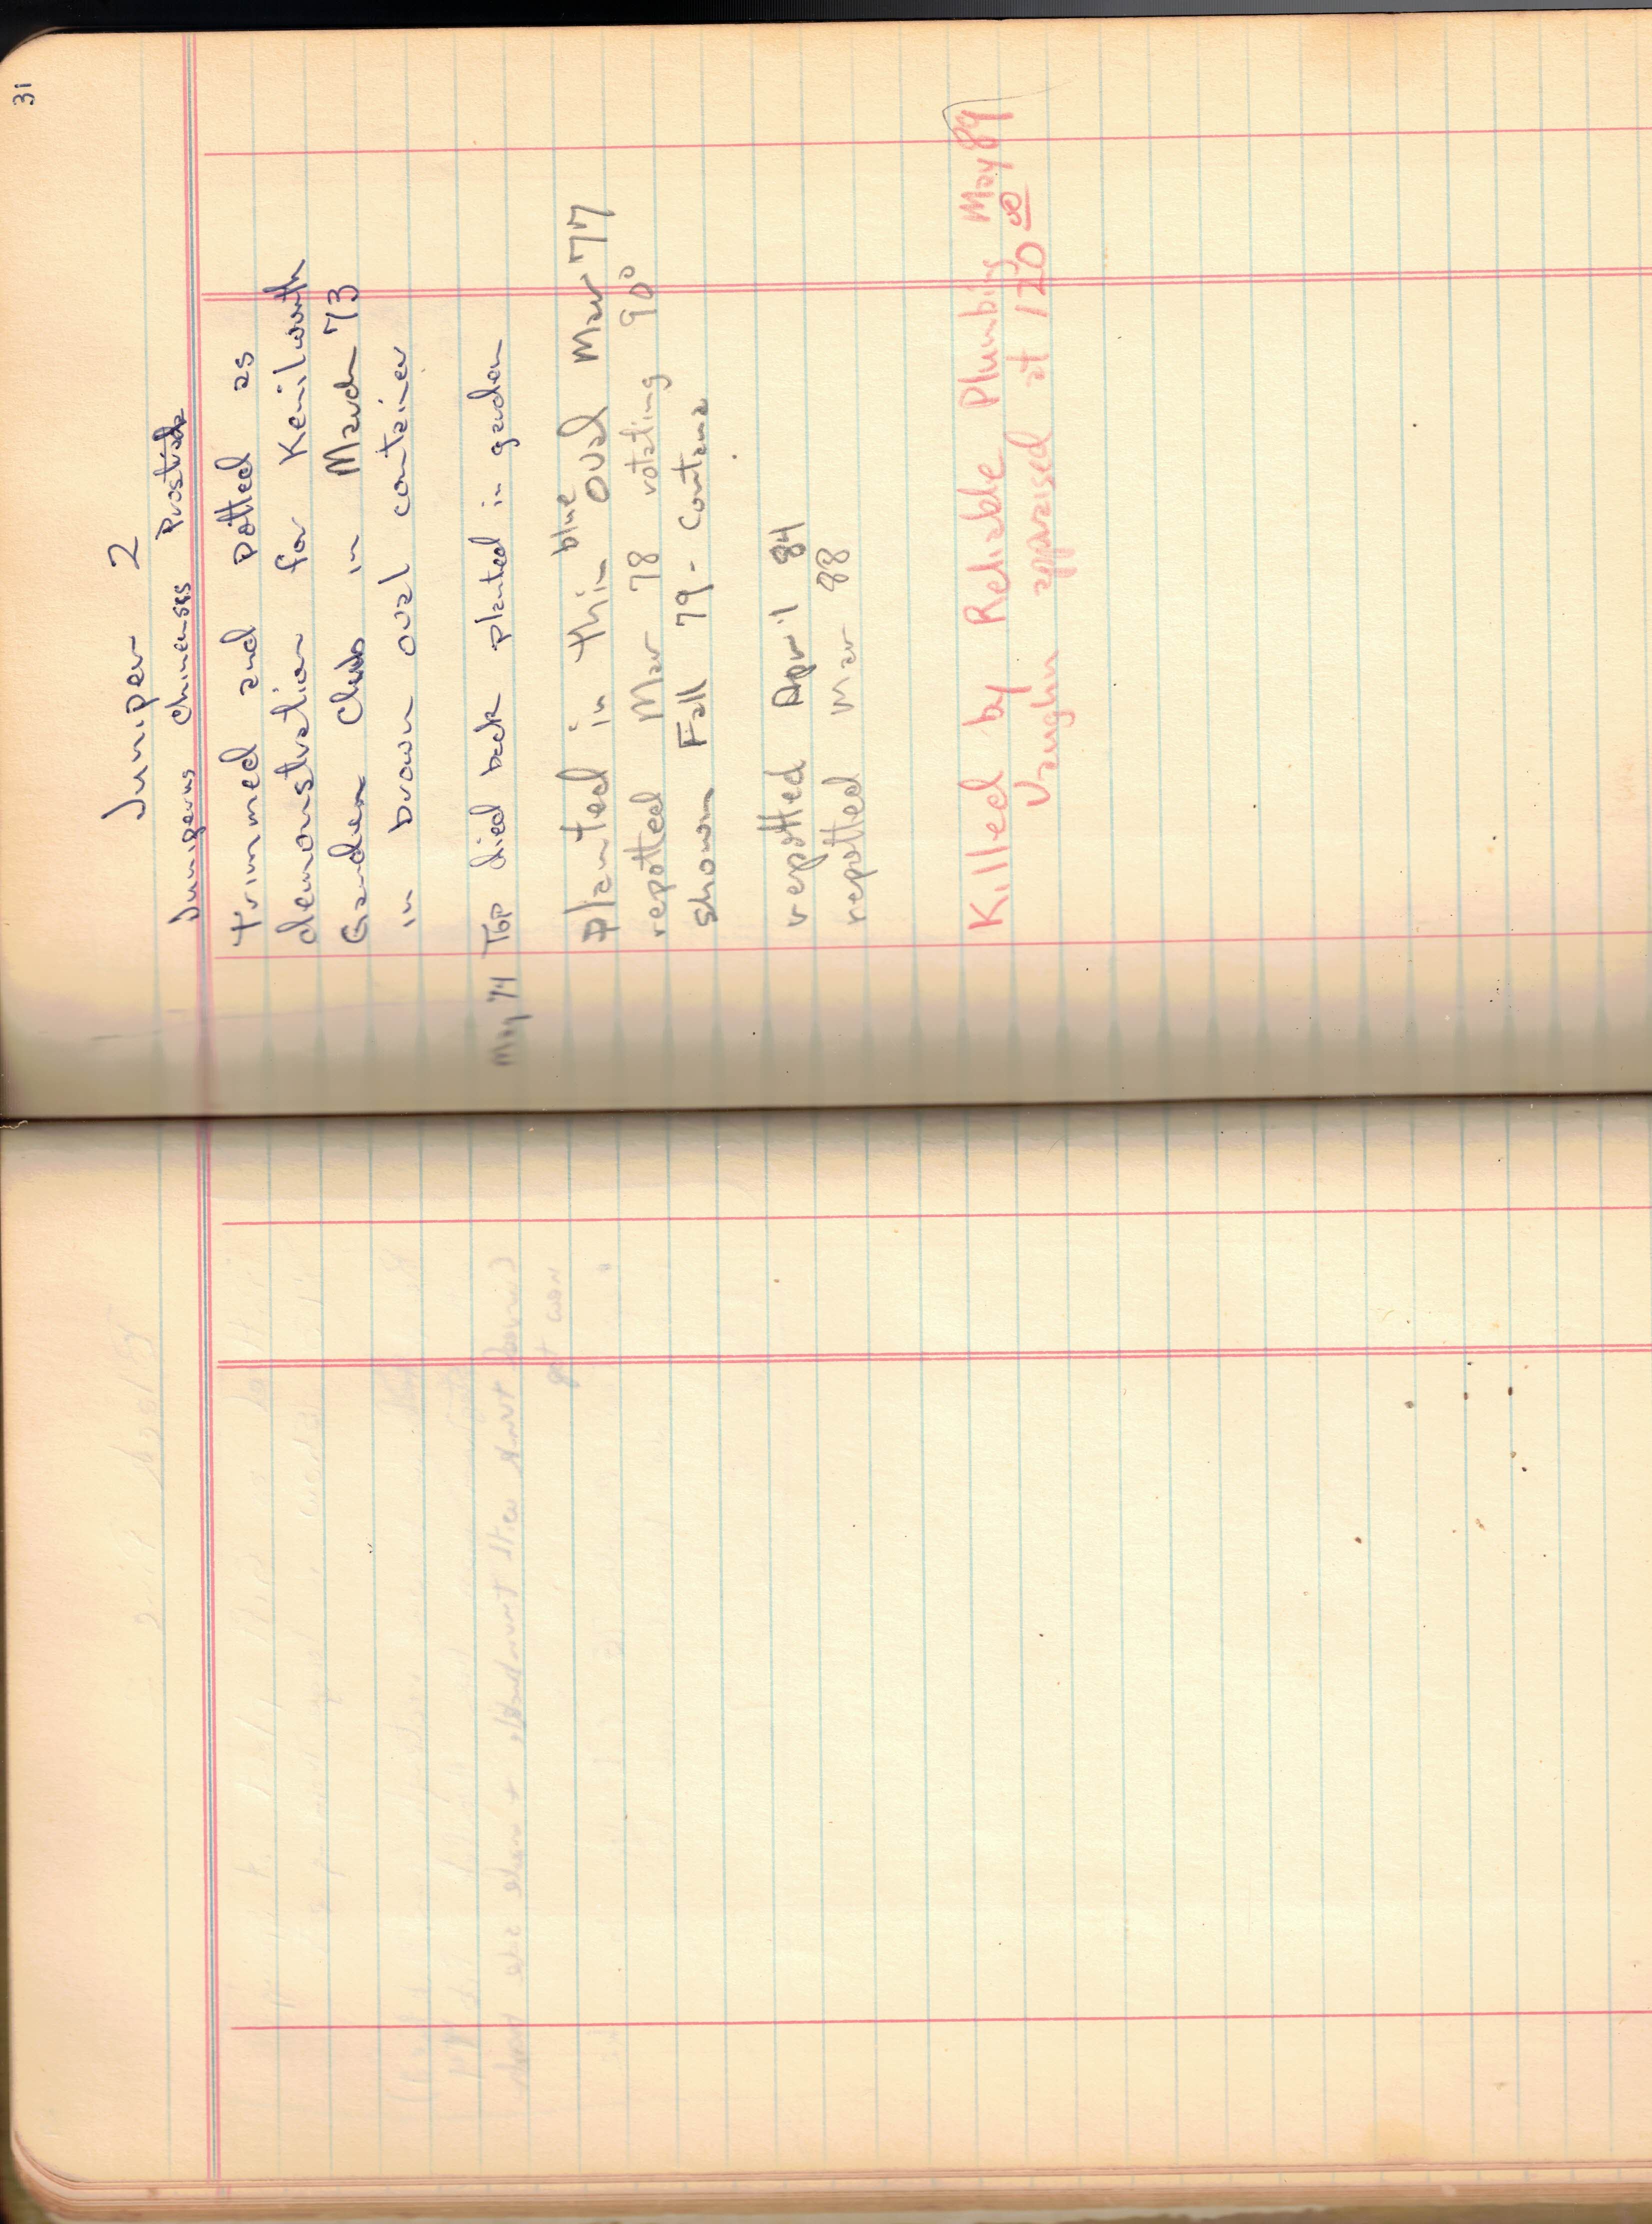 31
Juniper 2
Juniperus Chinensis
Trimmed and potted as
demonstration for Kenilworth
Garden Club in March 73
in brown oval container
May 74 Top died back planted in garden
planted in thin blue oval Mar 77
repotted Mar 78 rotating 90°
shown Fall 79 -
repotted Apr 1 84
repotted Mar 88
Killed by Reliable Plumbing May 89
Vaughn appraised at 120 00